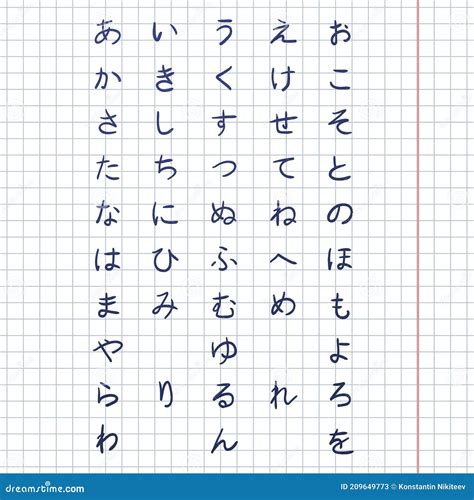 あ い う え お
か き く け こ
さ し す せ そ
た ち つ て と
な に ぬ ね の
は ひ ふ へ ほ
ま み む め も
や ゆ よ
ら り る れ ろ
わ ん を
dreamstime.com
ID 209649773 © Konstantin Nikiteev